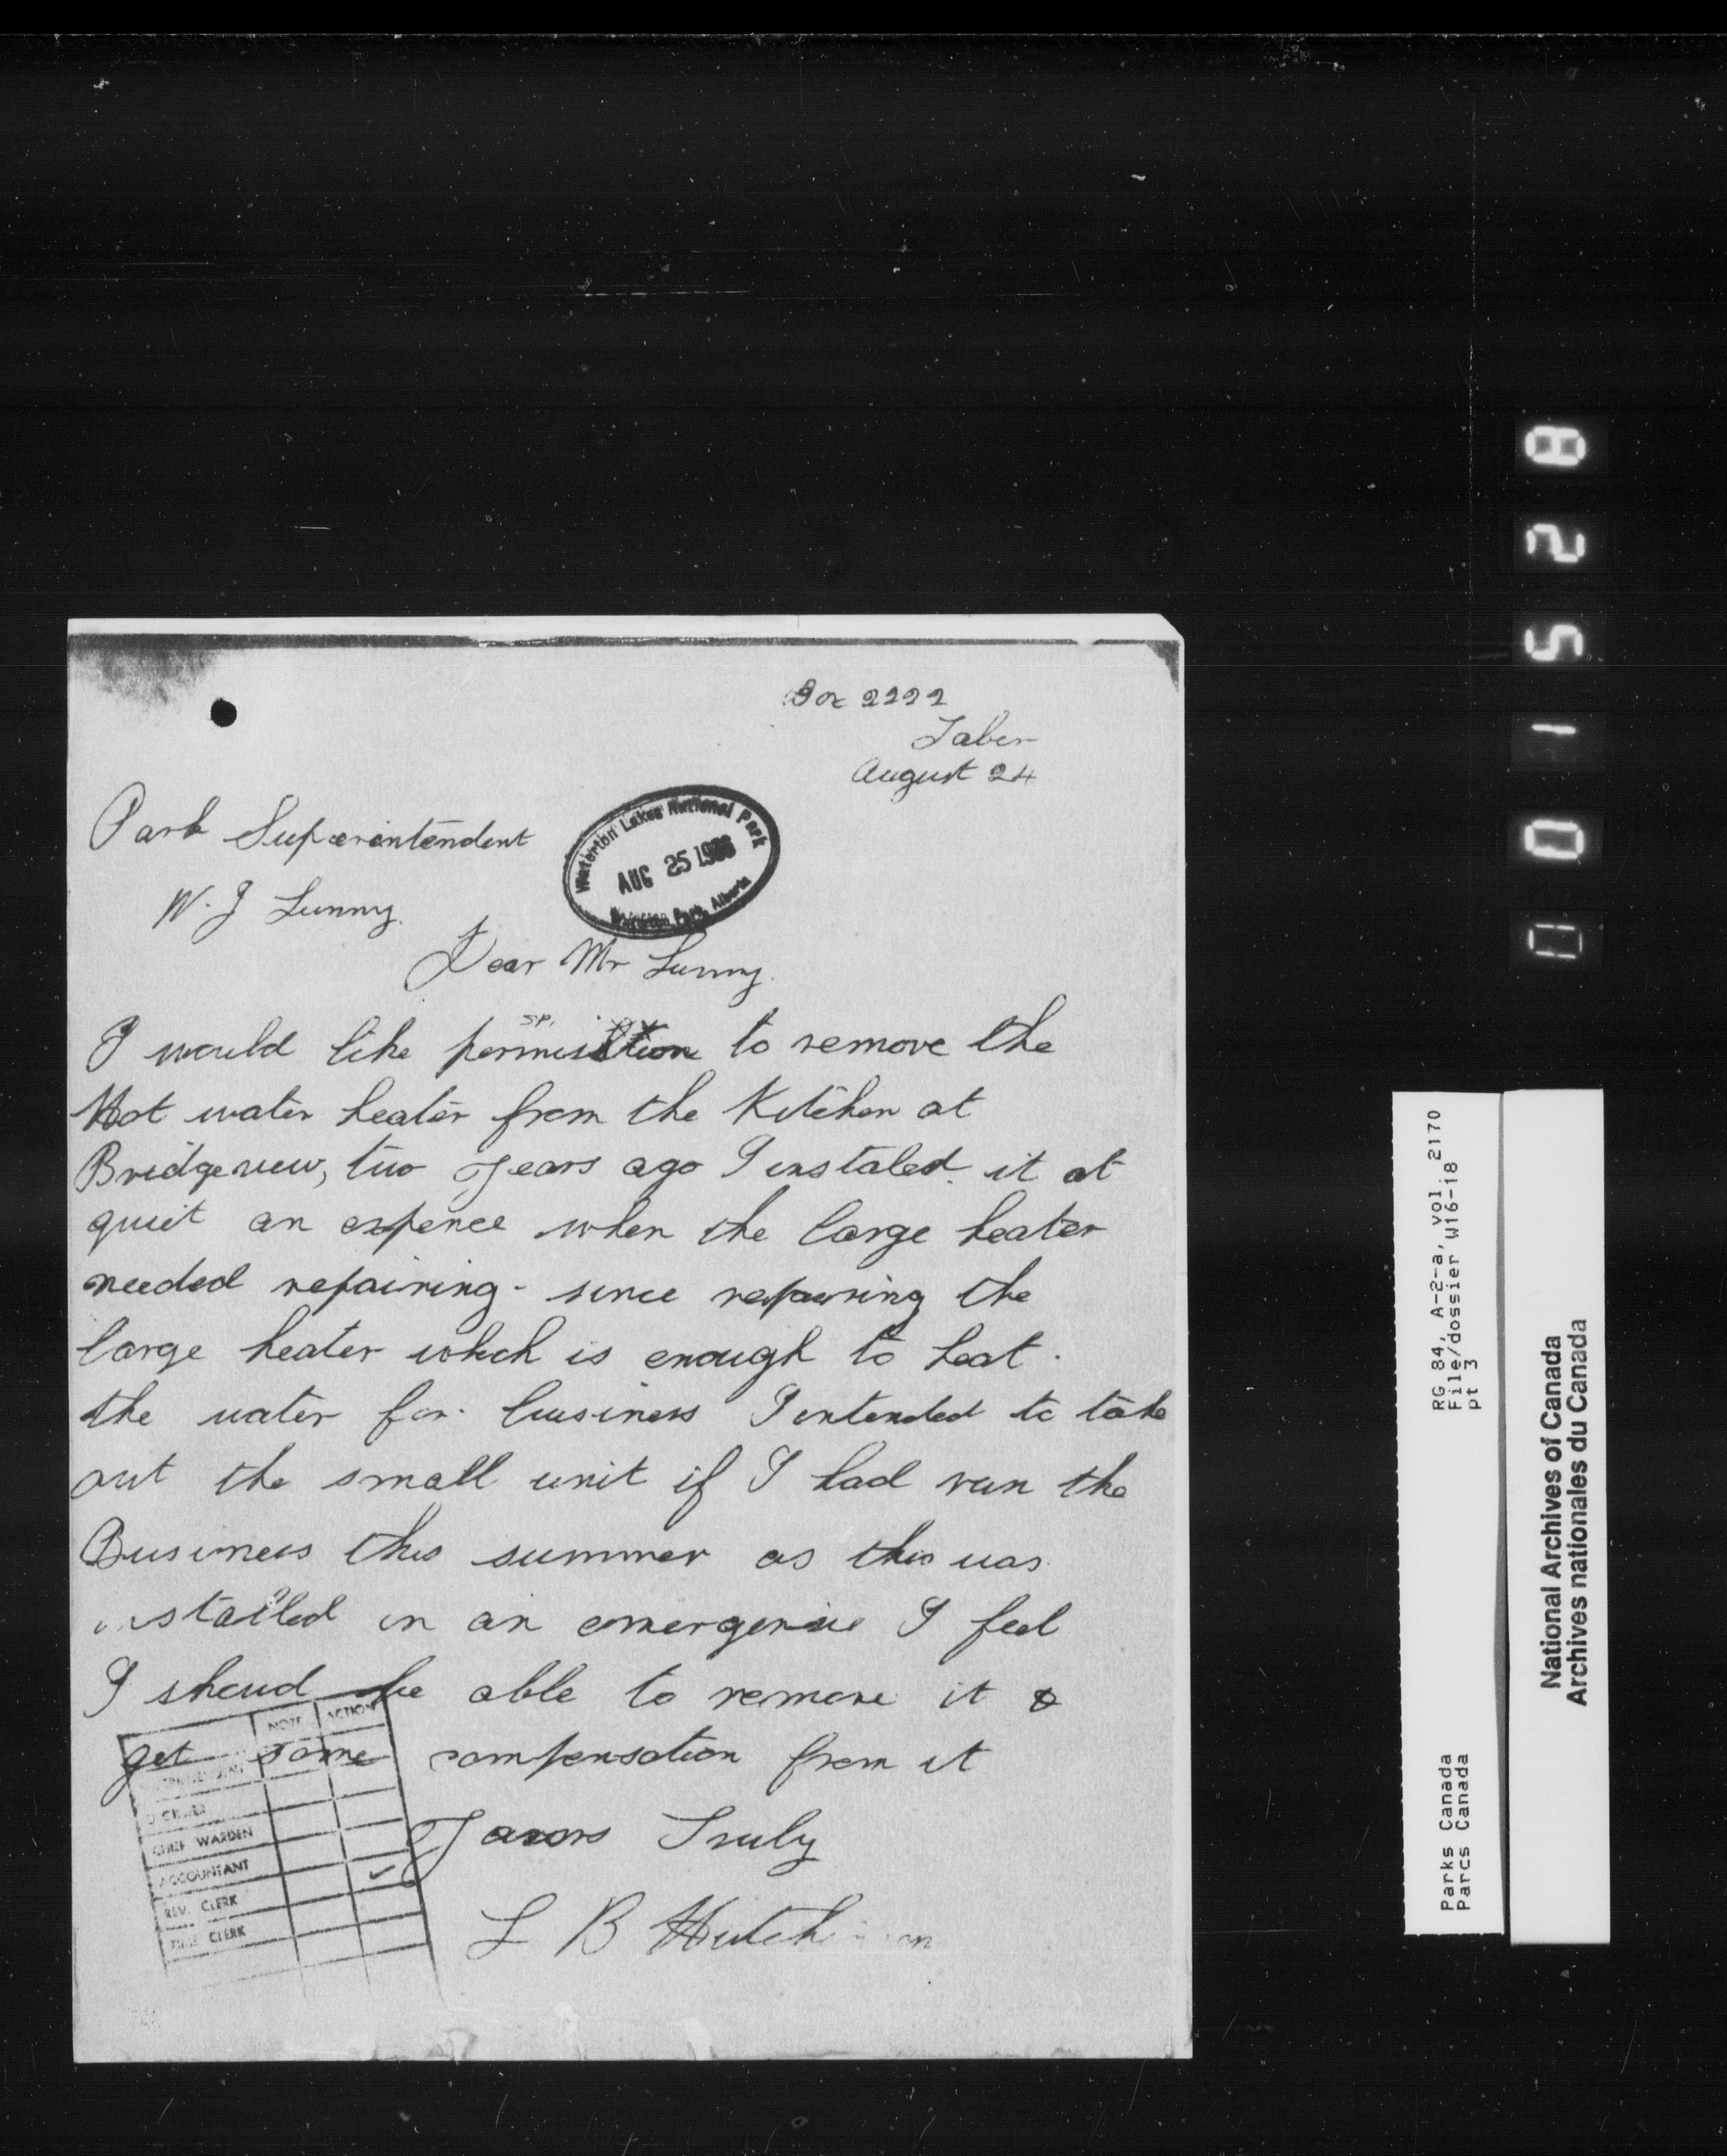 Box 2222
Taber
August 24
Park Superintendent
W. J Lunny.
Waterton Lakes National Park
AUG 25
Waterton Park, Alberta
Dear Mr Lunny.
SP.
I would like permisttion to remove the
Hot water heater from the Kitchen at
Bridgeview, two years ago I instaled it at
quiet an expence when the large heater
needed repairing - since repairing the
large heater which is enough to heat
the water for business I intended to take
out the small unit if I had run the
Business this summer as this was
installed in an emergensie I feel
I shoud be able to remove it &
get some compensation from it
Yavors Truly
L B Hutch
NOTE ACTION
CHIEF WARDEN
ACCOUNTANT
REV. CLERK
TIME CLERK
RG 84, A-2-a, vol. 2170
File/dossier W16-18
pt 3
Parks Canada
Parcs Canada
National Archives of Canada
Archives nationales du Canada
001528